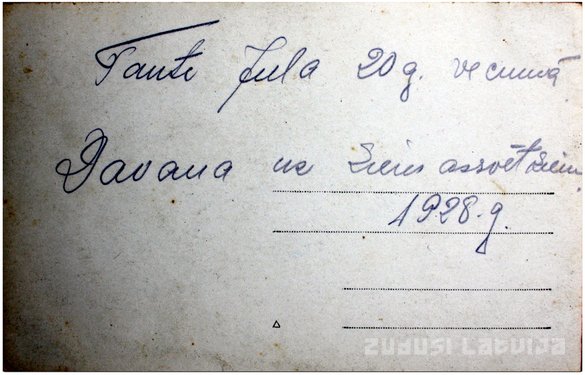 Tante Jula 20 g. vecumā
Davana uz Ziemassvētkiem
1928. g.
ZUDUSI LATVIJA